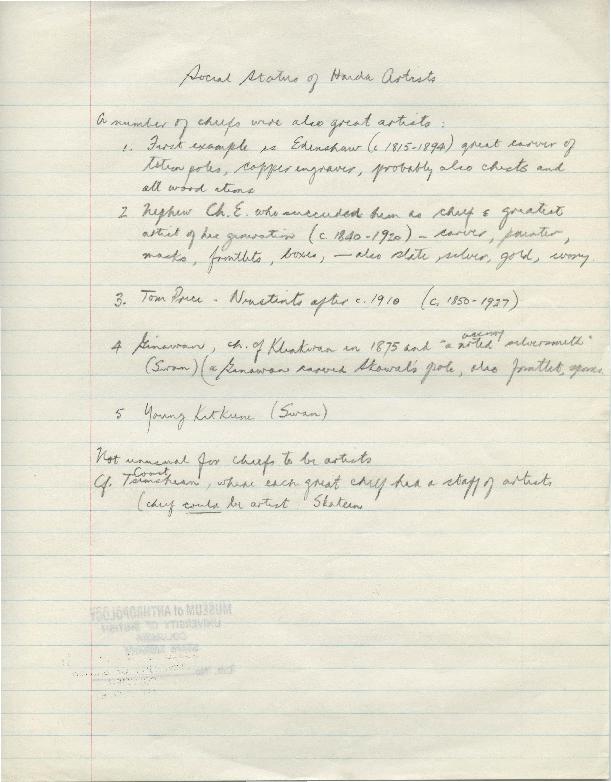 Social Status of Haida Artists
A number of chiefs were also great artists :
1. First example is Edenshaw (c 1815-1894) great carver of
totem poles, copper engraver, probably also chests and
all wood items
2 Nephew Ch. E. who succeeded him as chief & greatest
artist of his generation (c. 1840-1920) - carver, painter,
masks, frontlets, boxes, - also slate silver, gold, ivory.
3. Tom Price - Ninstints after c. 1910 (c. 1850-1927)
4 Ginawan, ch. of Klinkwan in 1875 and "a noted silversmith"
(Swan) (a Ginawan carved Skowal's pole, also frontlet, spoons.
5 Young Kitkune (Swan)
Not unusual for chiefs to be artists
Cf. Coast Tsimshian, where each great chief had a staff of artists
(chief could be artist Skateen
MUSEUM of ANTHROPOLOGY
UNIVERSITY OF BRITISH
COLUMBIA